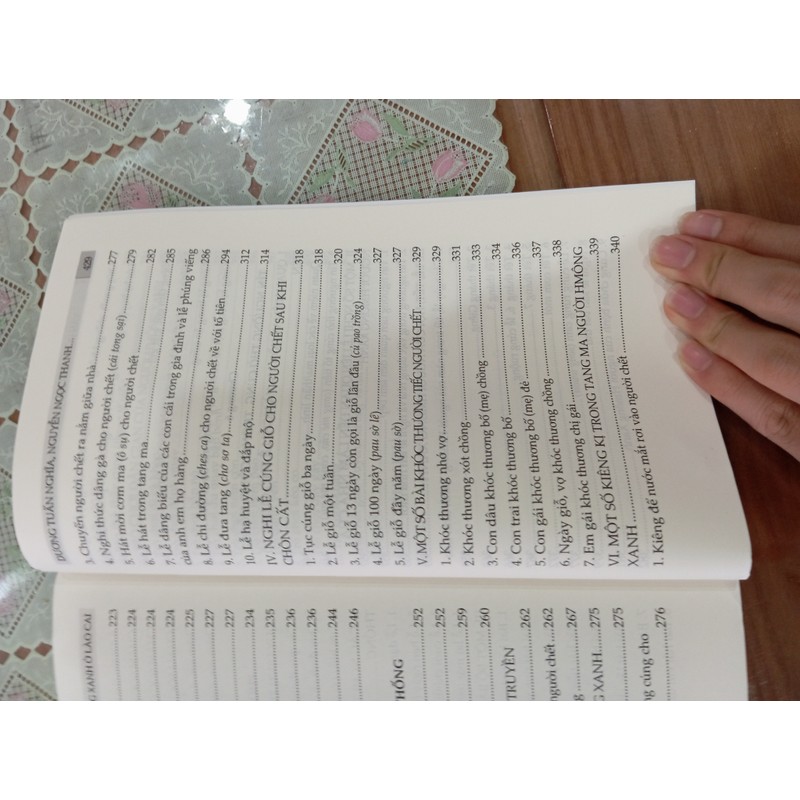 G XANH Ở LÀO CAI
223
224
224
224
225
227
227
234
235
236
236
244
246
THỐNG
252
252
259
260
TRUYỀN
262
người chết ...262
g ...267
G XANH ...275
275
ng cúng cho
276
DƯƠNG TUẤN NGHĨA, NGUYỄN NGỌC THANH... 429
3. Chuyển người chết ra nằm giữa nhà ...277
4. Nghi thức dâng gà cho người chết (cái tong sại) ...279
5. Hát mời cơm ma (ô sụ) cho người chết ...282
6. Lễ hát trong tang ma ...285
7. Lễ dâng biếu của các con cái trong gia đình và lễ phúng viếng
của anh em họ hàng ...286
8. Lễ chỉ đường (ches ca) cho người chết về với tổ tiên ...294
9. Lễ đưa tang (cho sơ ta) ...312
10. Lễ hạ huyệt và đắp mộ ...314
IV. NGHI LỄ CÚNG GIỖ CHO NGƯỜI CHẾT SAU KHI
CHÔN CẤT ...318
1. Tục cúng giỗ ba ngày ...318
2. Lễ giỗ một tuần ...320
3. Lễ giỗ 13 ngày còn gọi là giỗ lần đầu (cú pao trồng) ...324
4. Lễ giỗ 100 ngày (pau sờ lề) ...327
5. Lễ giỗ đầy năm (pau sờ) ...327
V. MỘT SỐ BÀI KHÓC THƯƠNG TIẾC NGƯỜI CHẾT ...329
1. Khóc thương nhớ vợ ...329
2. Khóc thương xót chồng ...331
3. Con dâu khóc thương bố (mẹ) chồng ...333
4. Con trai khóc thương bố ...334
5. Con gái khóc thương bố (mẹ) đẻ ...336
6. Ngày giỗ, vợ khóc thương chồng ...337
7. Em gái khóc thương chị gái ...338
VI. MỘT SỐ KIÊNG KỊ TRONG TANG MA NGƯỜI HMÔNG
XANH ...339
1. Kiêng để nước mắt rơi vào người chết ...340